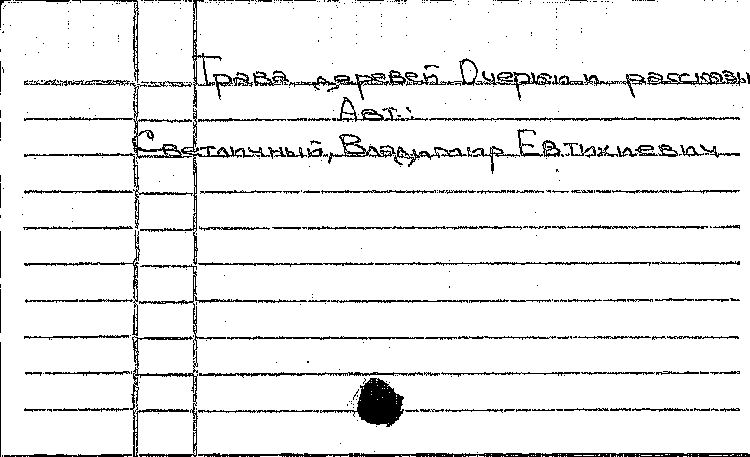 Трава деревей Очерки и рассказы
Авт.:
Светличный, Владимир Евтихиевич